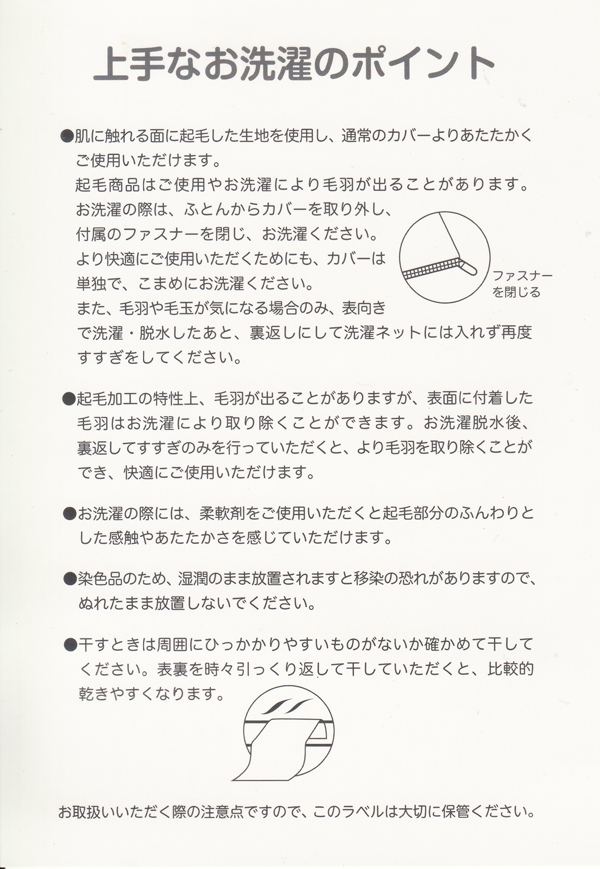 上手なお洗濯のポイント
●肌に触れる面に起毛した生地を使用し、通常のカバーよりあたたかく
ご使用いただけます。
起毛商品はご使用やお洗濯により毛羽が出ることがあります。
お洗濯の際は、ふとんからカバーを取り外し、
付属のファスナーを閉じ、お洗濯ください。
より快適にご使用いただくためにも、カバーは
単独で、こまめにお洗濯ください。
また、毛羽や毛玉が気になる場合のみ、表向き
で洗濯・脱水したあと、裏返しにして洗濯ネットには入れず再度
すすぎをしてください。
ファスナー
を閉じる
●起毛加工の特性上、毛羽が出ることがありますが、表面に付着した
毛羽はお洗濯により取り除くことができます。お洗濯脱水後、
裏返してすすぎのみを行っていただくと、より毛羽を取り除くことが
でき、快適にご使用いただけます。
●お洗濯の際には、柔軟剤をご使用いただくと起毛部分のふんわりと
した感触やあたたかさを感じていただけます。
●染色品のため、湿潤のまま放置されますと移染の恐れがありますので、
ぬれたまま放置しないでください。
●干すときは周囲にひっかかりやすいものがないか確かめて干して
ください。表裏を時々引っくり返して干していただくと、比較的
乾きやすくなります。
お取扱いいただく際の注意点ですので、このラベルは大切に保管ください。